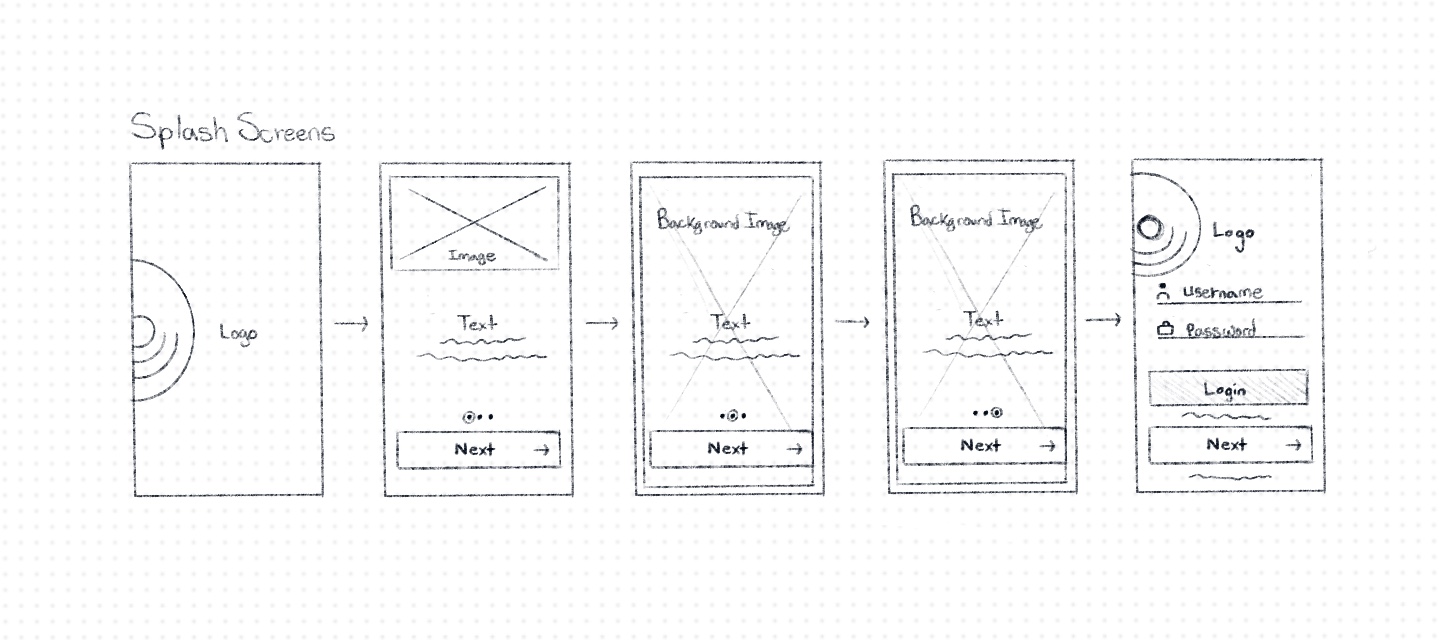 Splash Screens
Logo
Image
Text
Next
Background Image
Text
Next
Background Image
Text
Next
Logo
Username
Password
Login
Next